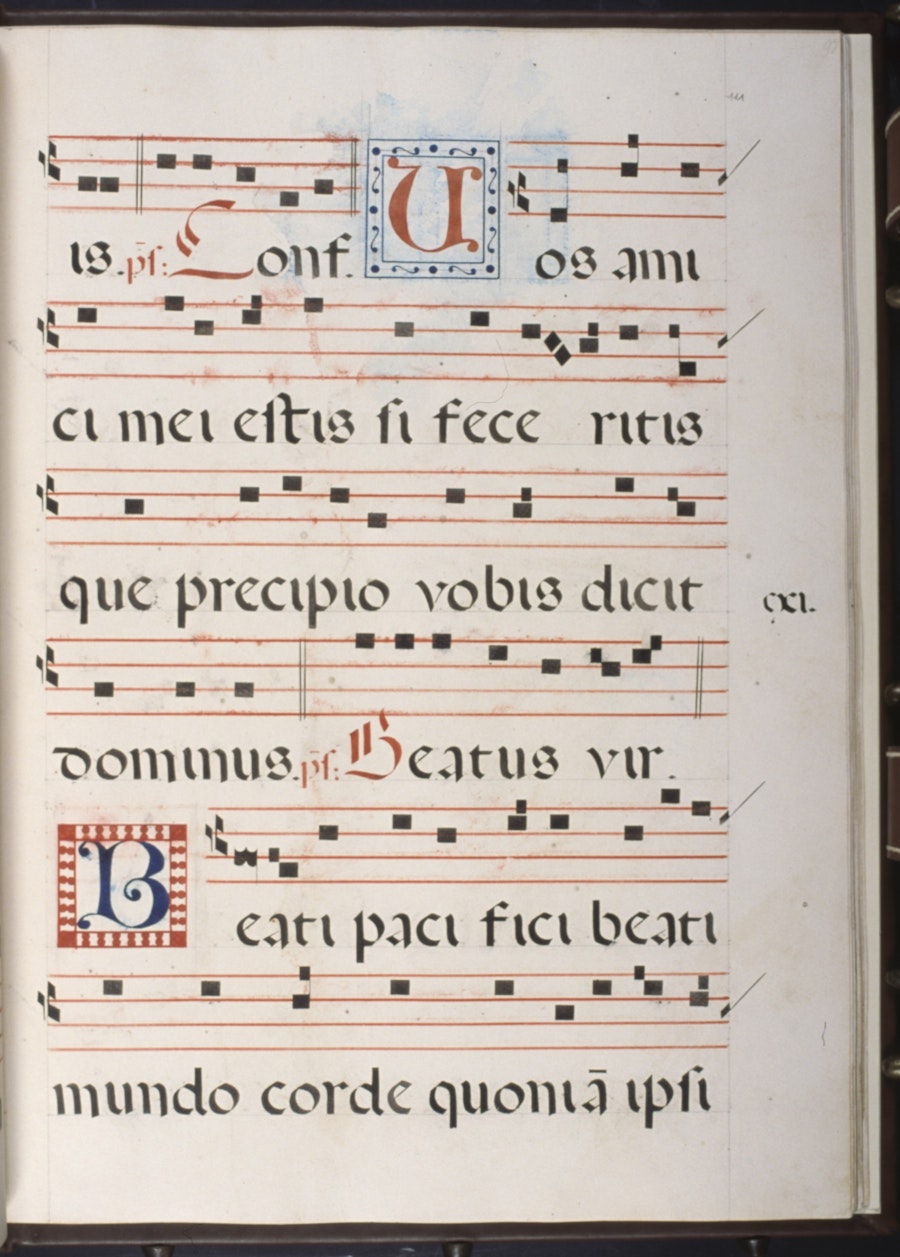 is. ps: Conf. Uos ami
ci mei estis si fece ritis
que precipio vobis dicit
cxi.
dominus. ps: Beatus vir.
Beati paci fici beati
mundo corde quoniā ipsi